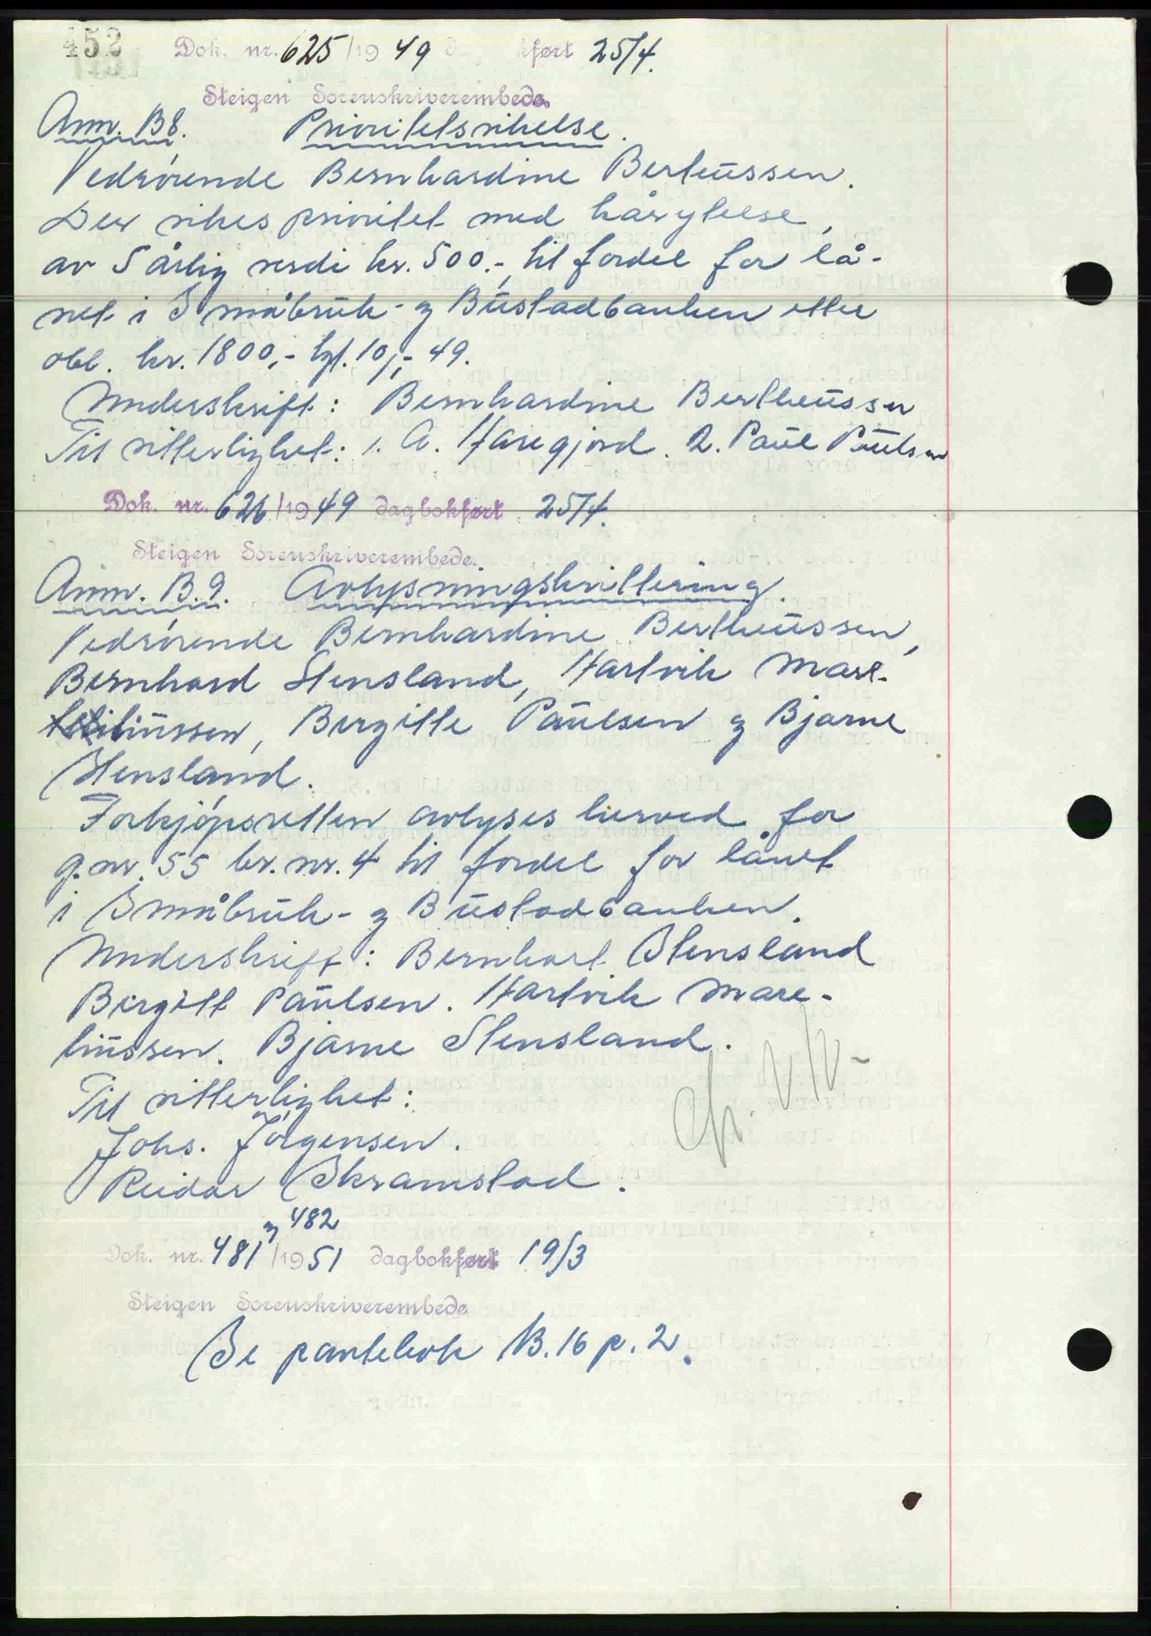 452
Dok. nr. 625/1949 d kført 25/4.
Steigen Sorenskriverembede.
Anm. B8. Prioritetsvikelse.
Vedrørende Bernhardine Berteussen.
Der vikes prioritet med kårytelse
av 5 årlig verdi kr. 500.-, til fordel for lå-
net i Småbruk- og Bustadbanken etter
obl. kr. 1800,- tgl. 49.
Underskrift: Bernhardine Bertheussen
Til vitterlighet: 1. A. Haregjord. 2. Paul Paulsen
Dok. nr. 626/1949 dagbokført 25/4.
Steigen Sorenskriverembede.
Anm. B.9. Avlysningskvittering.
Vedrørende Bernhardine Bertheussen,
Bernhard Stensland, Hartvik Mare-
liussen, Birgitte Paulsen og Bjarne
Stensland.
Forkjøpsretten avlyses herved for
g.nr. 55 br.nr. 4 til fordel for lånet
i Småbruk- og Bustadbanken.
Underskrift: Bernhart Stensland
Birgitt Paulsen. Hartvik Mare-
liussen. Bjarne Stensland.
Til vitterlighet:
Johs. Jörgensen.
Reidar Skramstad.
og 482
Dok. nr. 481/1951 dagbokført 19/3
Steigen Sorenskriverembede
Se pantebok B. 16 p. 2.